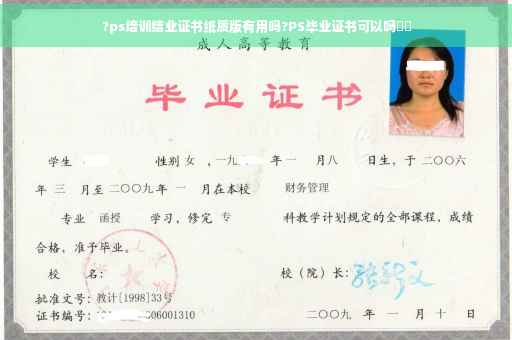 ?ps培训结业证书纸质版有用吗?PS毕业证书可以吗
成人高等教育
毕业证书
学生 性别 女 ,一九 年 一 月八 日生，于 二〇〇六
年 三 月至 二〇〇九 年 一 月在本校 财务管理
专业 函授 学习，修完 专 科教学计划规定的全部课程，成绩
合格，准予毕业。
校 名： 校（院）长：
批准文号：教计[1998]33号
证书编号： 06001310 二〇〇九 年 一 月 十 日